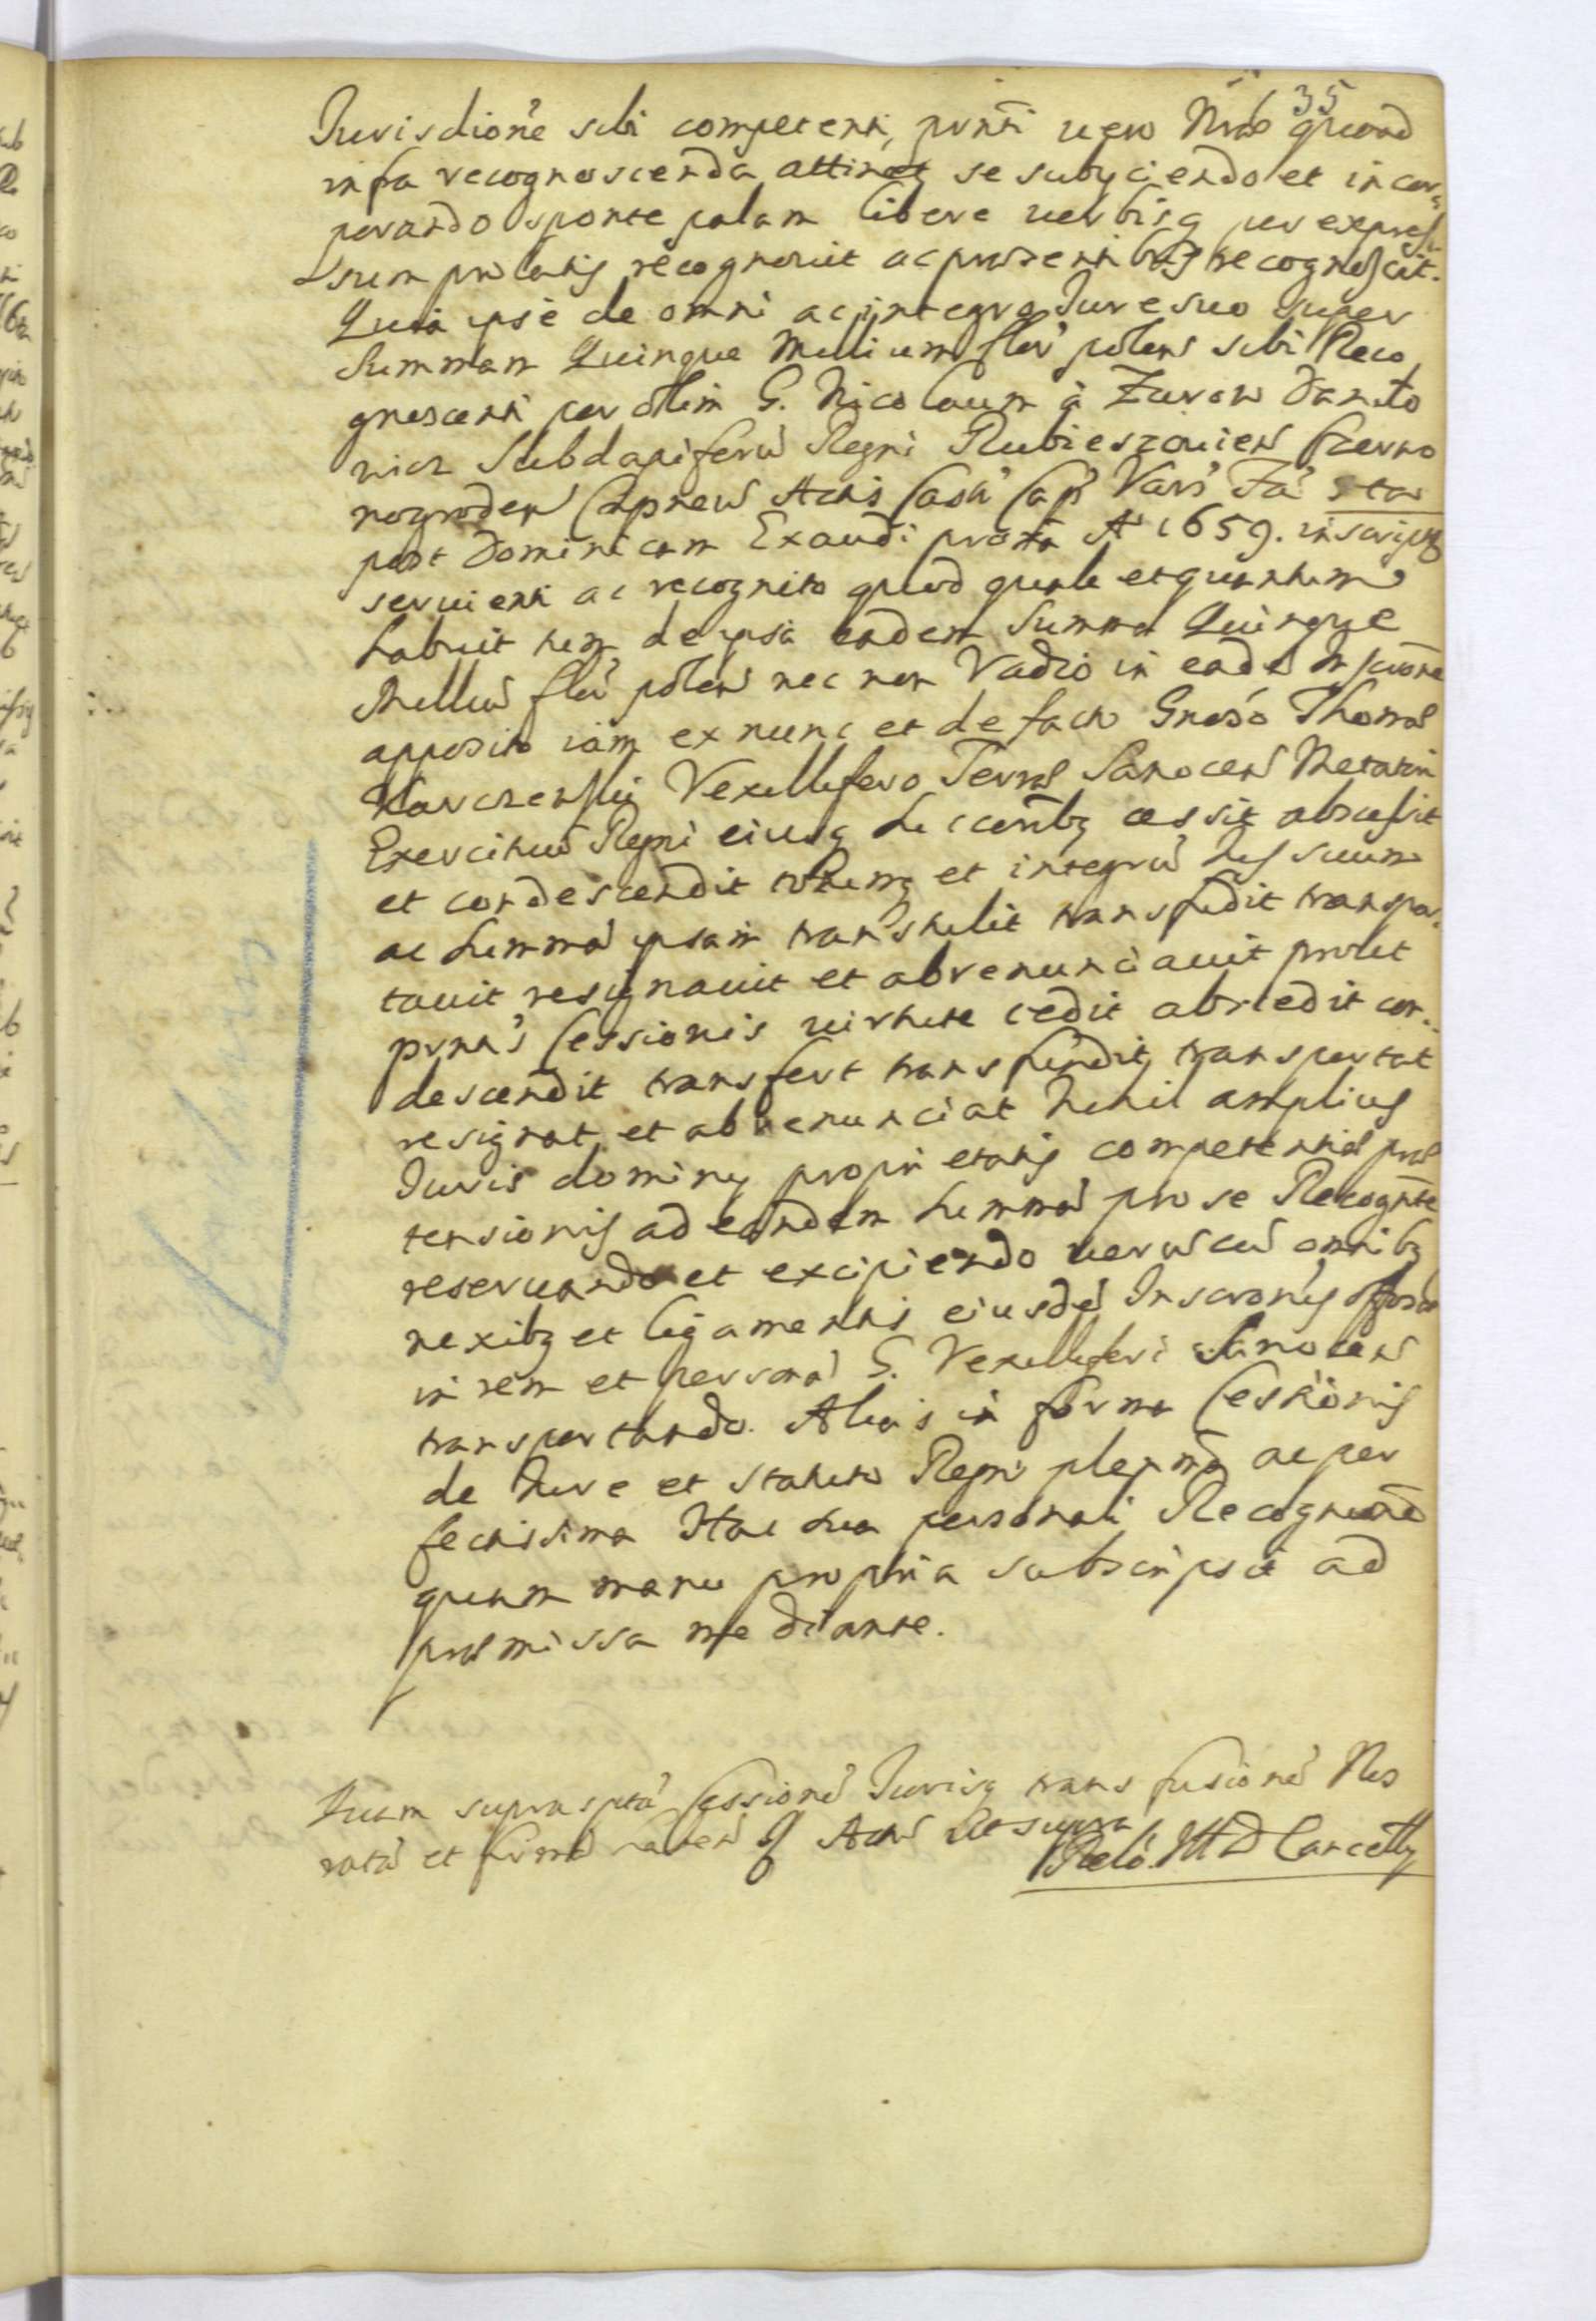 35
Jurisdione sibi competenti, pnti vero quoad
infra recognoscenda attinet se subyciendo et incor
porando sponte palam libere verbisq per expres
sum prolatis recognovit ac praesentibus recognoscit.
Quia ipse de omni ac integro Jure suo super
Summam Quinque Millium flor polon sibi Reco
gnoscenti per olim G. Nicolaum à Zurow Danilo
wicz Subdapiferu Regni Rubieszowien Czerwo
nogroden Capneu Actis Castr Cap Vars fa 2da
post Dominicam Exaudi proxa Ao 1659. inscript
servienti ac recognito quod quale et quantum
habuit tum de ipsa eadem Summa Quinque
Milliu flor polon nec non Vadio in eade Inscrone
apposito iam ex nunc et de facto Gnoso Thomae
Karczewski Vexillifero Terrae Sanocen Metatori
Exercituu Regni eiusq succesribq cessit abscessit
et condescendit totumq et integru Jus suum
ac Summa ipsam transtulit transfudit transpor
tavit resignavit et abrenunciavit prout
pntis Cessionis virtute cedit abscedit con
descendit transfert transfundit transportat
resignat et abrenunciat Nihil amplius
Juris dominy proprietatis competentiae prae
tensionis ad eandem Summa pro se Recognte
reservando et excipiendo verum cu omnibq
nexibq et ligamentis eiusde Inscronis
in rem et persona G. Vexilliferi Sanocen
transportando. Alias in forma Cessionis
de Jure et statuto Regni plenma ac per
fectissima Hac sua personali Recogne
quam manu propria subscripsit ad
praemissa mediante.
Quam suprascpta Cessione Jurisq transfusione
rata et firma Actis ut supra
Cancell